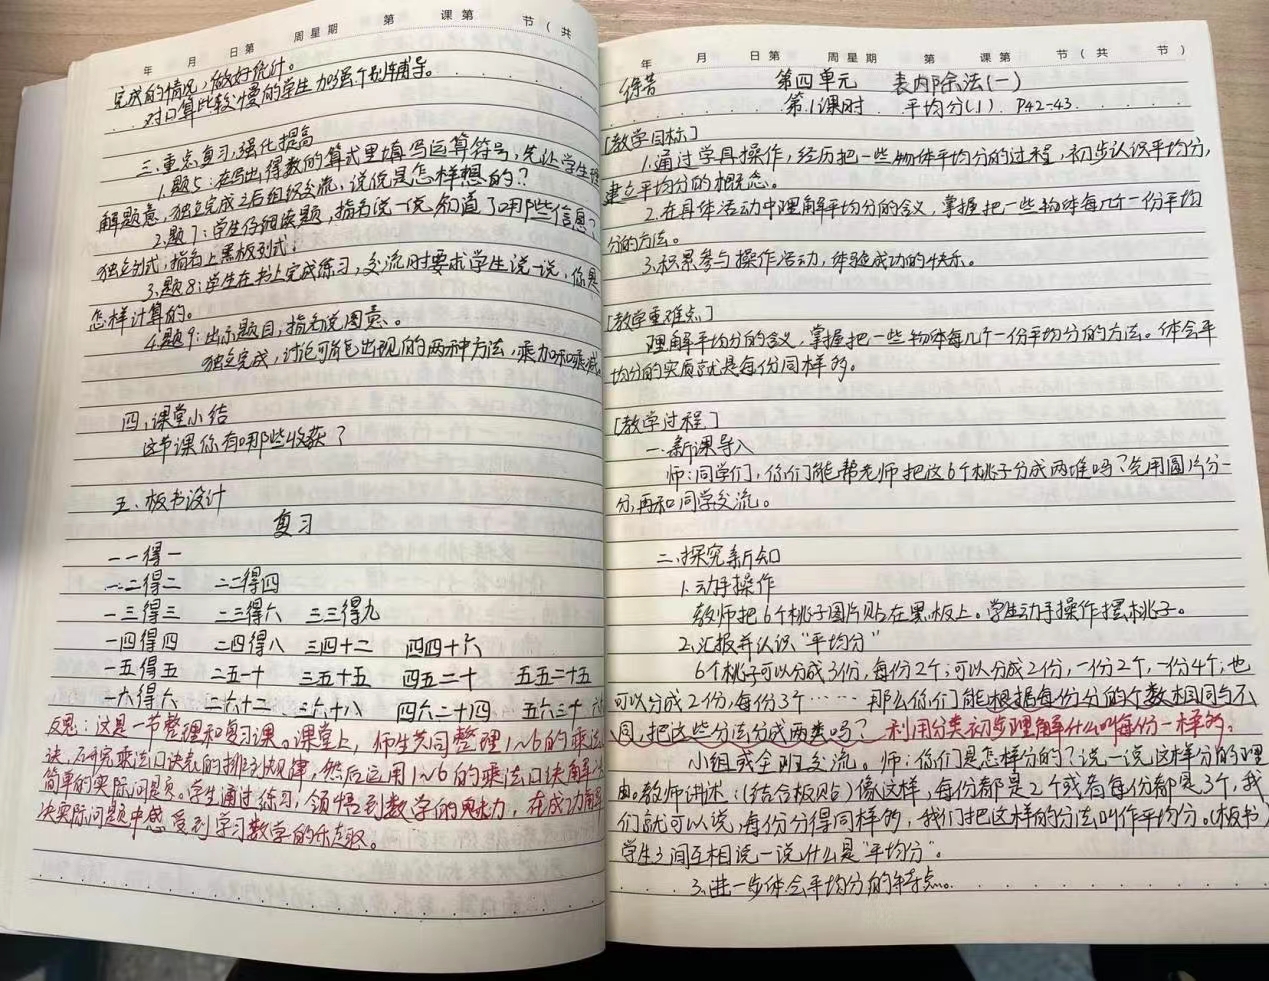 年 月 日第 周星期 第 课第 节(共
完成的情况,做好统计。
对口算比较慢的学生加强个别辅导。
三、重点复习,强化提高
1.题5:在写出得数的算式里填写运算符号,先让学生理
解题意,独立完成之后组织交流,说说是怎样想的?
2.题7:学生仔细读题,指名说一说知道了哪些信息?
独立列式,指名上黑板列式;
3.题8:学生在书上完成练习,交流时要求学生说一说,你是
怎样计算的。
4.题9:出示题目,指名说图意。
独立完成,讨论可能出现的两种方法,乘加和乘减。
四、课堂小结
这节课你有哪些收获?
五、板书设计
复习
一一得一
一二得二 二二得四
一三得三 二三得六 三三得九
一四得四 二四得八 三四十二 四四十六
一五得五 二五一十 三五十五 四五二十 五五二十五
一六得六 二六十二 三六十八 四六二十四 五六三十 六
反思:这是一节整理和复习课。课堂上,师生共同整理1~6的乘法口
诀,研究乘法口诀表的排列规律,然后运用1~6的乘法口诀解决
简单的实际问题。学生通过练习,领悟到数学的魅力,在成功解
决实际问题中感受到学习数学的乐趣。
年 月 日第 周星期 第 课第 节(共 节)
第四单元 表内除法(一)
第1课时 平均分(1) P42-43.
[教学目标]
1.通过学具操作,经历把一些物体平均分的过程,初步认识平均分,
建立平均分的概念。
2.在具体活动中理解平均分的含义,掌握把一些物体每几个一份平均
分的方法。
3.积累参与操作活动,体验成功的快乐。
[教学重难点]
理解平均分的含义,掌握把一些物体每几个一份平均分的方法。体会平
均分的实质就是每份同样多。
[教学过程]
一、新课导入
师:同学们,你们能帮老师把这6个桃子分成两堆吗?先用圆片分一
分,再和同学交流。
二、探究新知
1.动手操作
教师把6个桃子图片贴在黑板上。学生动手操作摆桃子。
2.汇报并认识“平均分”
6个桃子可以分成3份,每份2个;可以分成2份,一份2个,一份4个;也
可以分成2份,每份3个…… 那么你们能根据每份分的个数相同与不
同,把这些分法分成两类吗? 利用分类初步理解什么叫每份一样多。
小组或全班交流。师:你们是怎样分的?说一说这样分的理
由。教师讲述:(结合板贴)像这样,每份都是2个或者每份都是3个,我
们就可以说,每份分得同样多,我们把这样的分法叫作平均分。(板书)
学生之间互相说一说什么是“平均分”。
3.进一步体会平均分的特点。